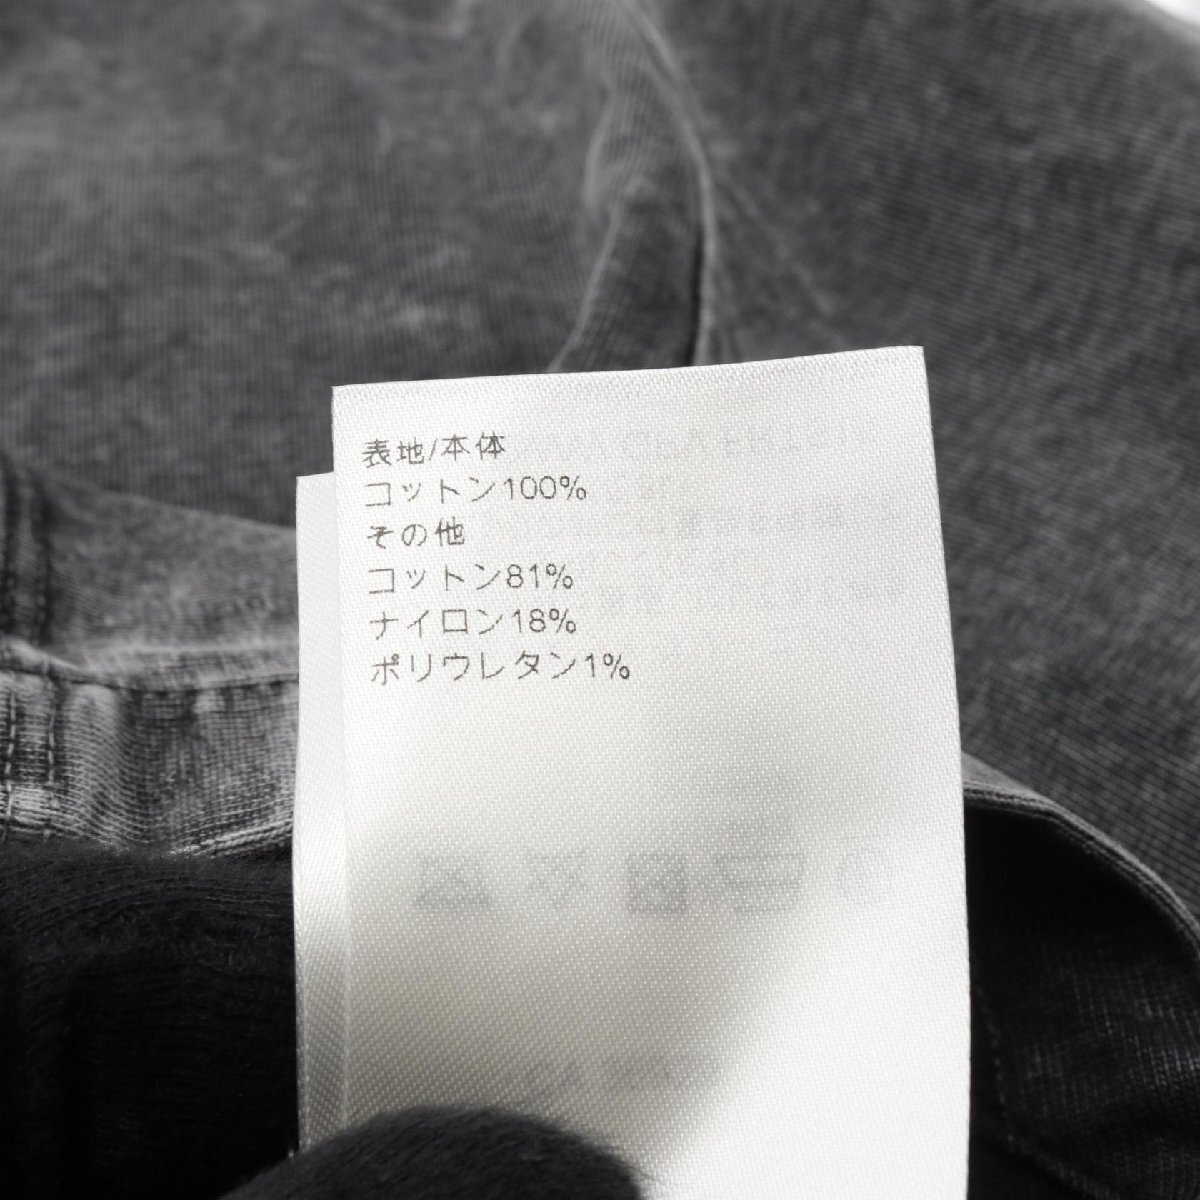 表地/本体
コットン100%
その他
コットン81%
ナイロン18%
ポリウレタン1%